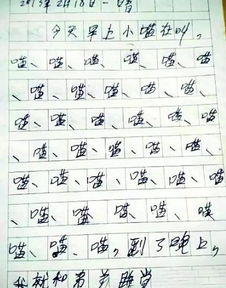 年2月18日 一
今天早上小喵在叫，
喵、喵、喵、喵、喵、喵
、喵、喵、喵、喵、喵
喵、喵、喵、喵、喵、喵
、喵、喵、喵、喵、喵
喵、喵、喵、喵、喵、喵
、喵、喵、喵、喵、喵
喵、喵、喵，到了晚上，
我就和弟弟睡觉